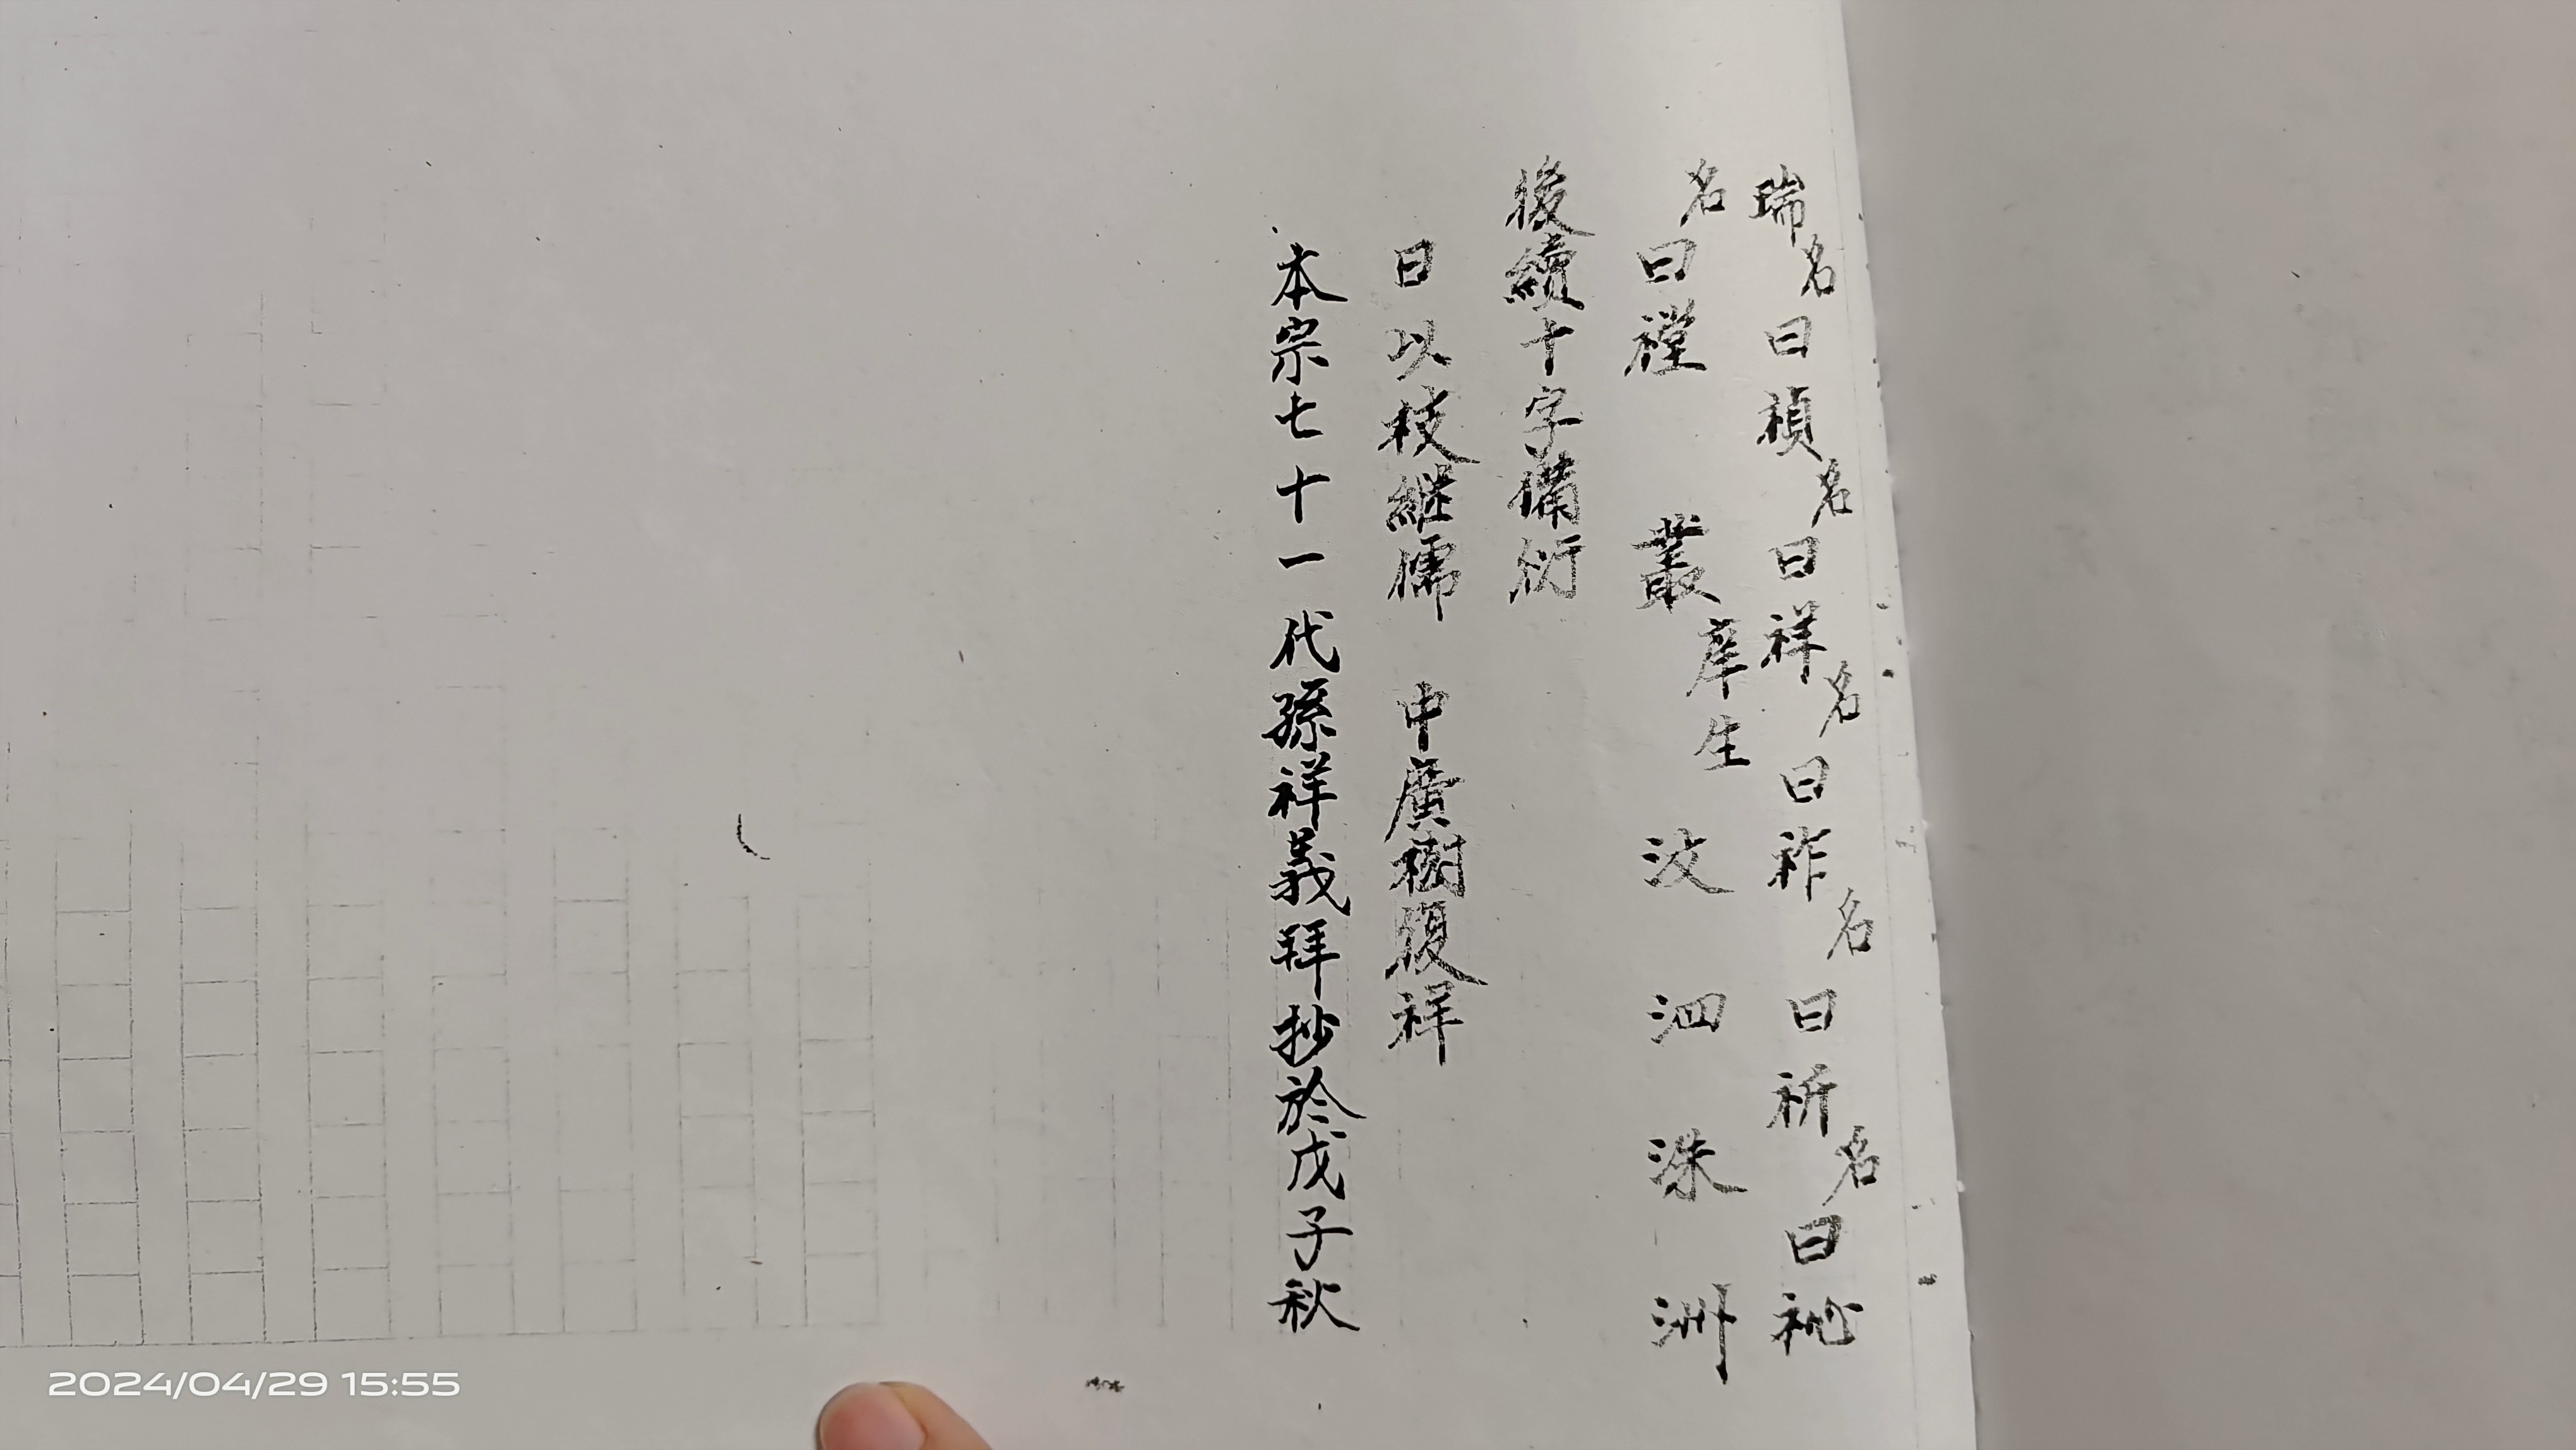 瑞名曰禎名曰祥名曰祚名曰祈名曰祕
名曰禋 叢庠生 汶 泗 洙 洲
後續十字備衍
曰以枝継儒 中廣樹復祥
本宗七十一代孫祥義拜抄於戊子秋
2024/04/29 15:55